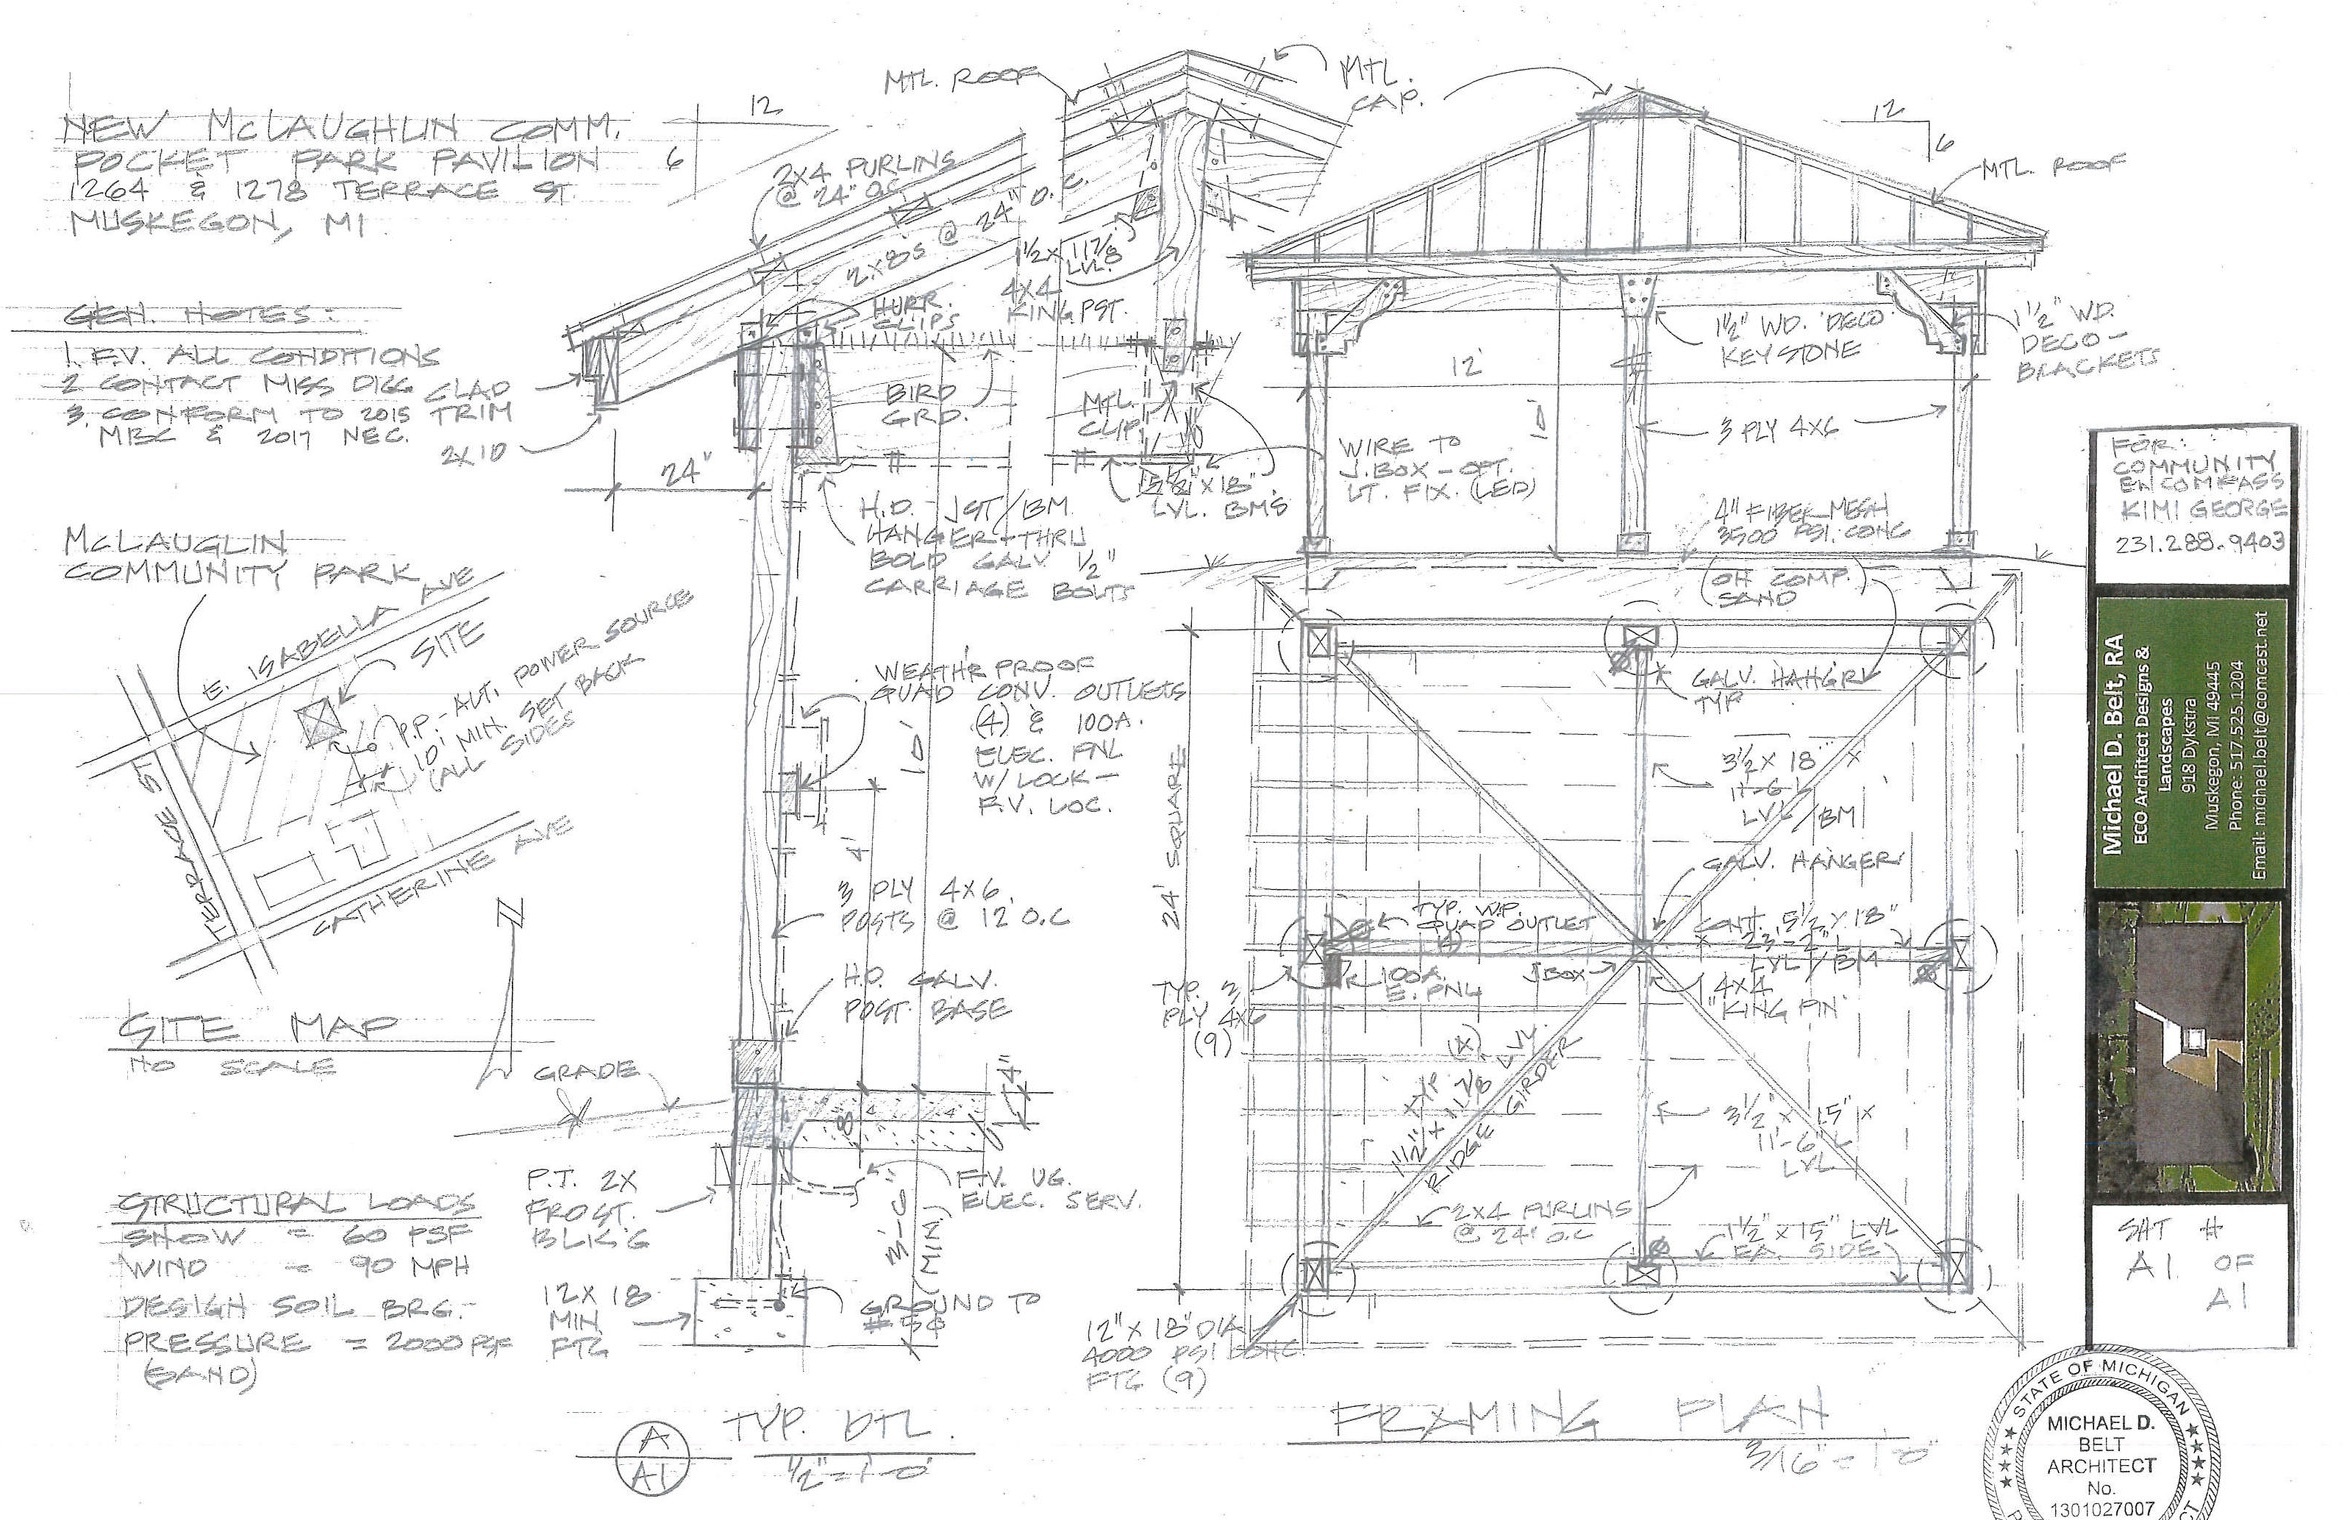 NEW McLAUGHLIN COMM.
POCKET PARK PAVILION
1264 & 1278 TERRACE ST.
MUSKEGON, MI
GEN. NOTES:
1. F.V. ALL CONDITIONS
2 CONTACT MISS DIGG
3. CONFORM TO 2015
MBC & 2017 NEC.
CLAD
TRIM
2X10
McLAUGLIN
COMMUNITY PARK
E. ISABELLA AVE
SITE
P.P. - ALT. POWER SOURCE
10' MIN. SET BACK
(ALL SIDES
TERRACE ST
CATHERINE AVE
N
SITE MAP
NO SCALE
STRUCTURAL LOADS
SNOW = 60 PSF
WIND = 90 MPH
DESIGN SOIL BRG.
PRESSURE = 2000 PSF
(SAND)
12
6
2X4 PURLINS
@ 24" O.C.
2X8'S @ 24" O.C.
MTL. ROOF
MTL.
CAP.
1 1/2 X 11 7/8
LVL.
4X4
KING PST.
HURR.
CLIPS
BIRD
GRD.
MTL.
CLIP
24"
X 18"
LVL. BMS
H.D. JST/BM
HANGER-THRU
BOLD GALV 1/2"
CARRIAGE BOLTS
WEATH'R PROOF
QUAD CONV. OUTLETS
(4) & 100A.
ELEC. PNL
W/LOCK -
F.V. LOC.
10'
4'
3 PLY 4X6
POSTS @ 12' O.C
H.D. GALV.
POST BASE
GRADE
4"
8
P.T. 2X
FROST.
BLK'G
F.V. UG.
ELEC. SERV.
3'-6
(MIN)
12 X 18
MIN
FTG
GROUND TO
A
A1
TYP. DTL.
1/2" = 1'-0"
12
6
MTL. ROOF
1 1/2" WD. DECO
KEYSTONE
1 1/2" WD.
DECO-
BRACKETS
12'
10'
3 PLY 4X6
WIRE TO
J.BOX - OPT.
LT. FIX. (LED)
4" FIBER MESH
3500 PSI. CONC
(OH COMP.)
SAND
GALV. HANGR
TYP
24' SQUARE
3 1/2 X 18" X
11'-6 L
LVL/BM
GALV. HANGER
TYP. W.P.
QUAD OUTLET
(4)
CONT. 5 1/2 X 18"
X 23'-2" L
LVL/BM
100A.
E. PNL
J BOX
4X4
"KING PIN"
TYP. 3
PLY 4X6
(9)
TYP (4)
1 1/2" X 11 7/8 LVL.
RIDGE GIRDER
3 1/2" X 15" X
11'-6" L
LVL
2X4 PURLINS
@ 24' O.C
1 1/2" X 15" LVL
EA. SIDE
12" X 18" DIA
4000 PSI CONC.
FTG (9)
FRAMING PLAN
3/16" = 1'-0"
FOR:
COMMUNITY
ENCOMPASS
KIMI GEORGE
231.288.9403
Michael D. Belt, RA
ECO Architect Designs &
Landscapes
918 Dykstra
Muskegon, MI 49445
Phone: 517.525.1204
Email: michael.belt@comcast.net
SHT #
A1 OF
A1
STATE OF MICHIGAN
MICHAEL D.
BELT
ARCHITECT
No.
1301027007